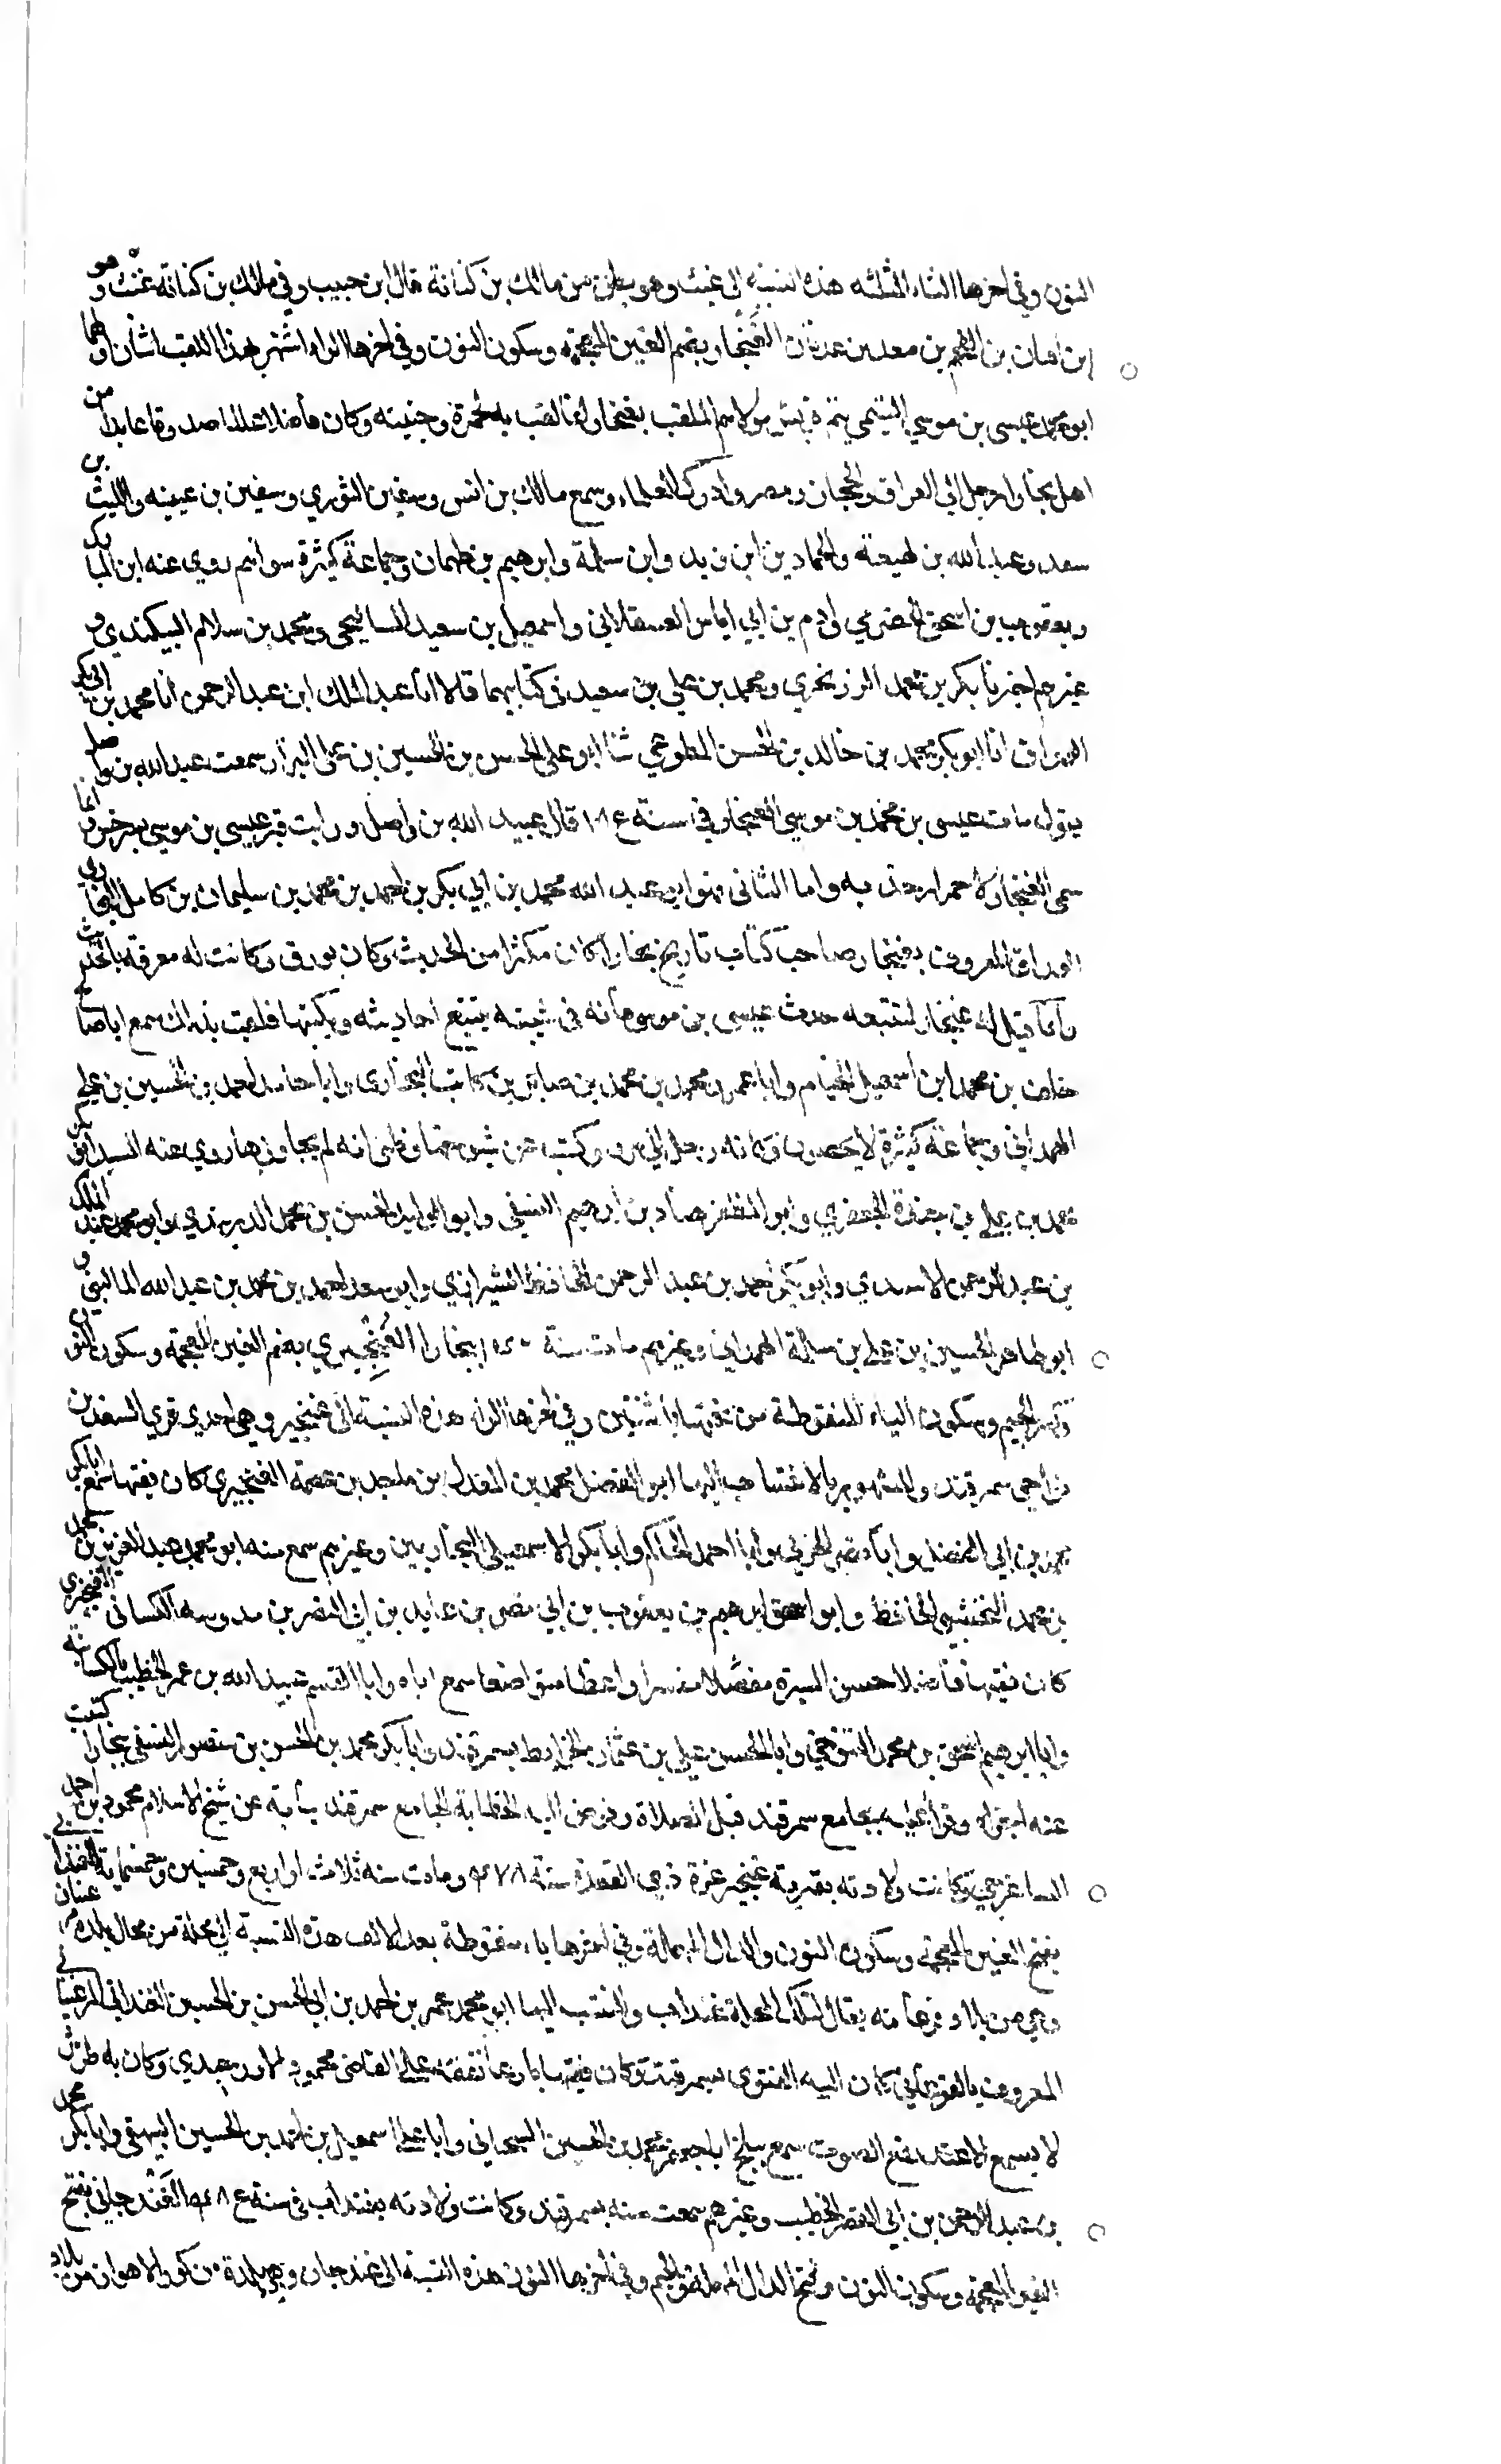 النون وفي اخرها الثاء المثلثه هذه النسبه الى غنث وهو بطن من مالك بن كنانة قال ابن حبيب وفي مالك بن كنانة غنث وهو
ابن افيان بن القحم بن معد بن عدنان الغنجار بضم الغين المعجمة وسكون النون وفي اخرها الراء اشتهر بهذا اللقب اثنان اولهما
ابو محمد عيسى بن موسى التيمي تيم قريش مولاهم الملقب بغنجار انما لقب به لحمرة وجنتيه وكان فاضلا صدوقا عابدا من
اهل بخارا رحل الى العراق والحجاز ومصر وادرك العلماء وسمع مالك بن انس وسفين الثوري وسفين بن عيينه والليث بن
سعد وعبد الله بن لهيعة والحمادين ابن زيد وابن سلمة وابرهيم بن طهمان وجماعة كثيرة سواهم روى عنه ابن المبارك
ويعقوب بن اسحق الحضرمي وادم بن ابي اياس العسقلاني واسمعيل بن سعيد ومحمد بن سلام البيكندي و
غيرهم اخبرنا بكر بن محمد الزرنجري ومحمد بن علي بن سعيد في كتابيهما قالا انا عبد الملك ابن عبد الرحمن انا محمد بن ابي بكر
الوراق انا ابو بكر محمد بن خالد بن الحسن المطوعي ثنا ابو علي الحسن بن الحسين بن علي البزار سمعت عبيد الله بن واصل
يقول مات عيسى بن محمد بن موسى الغنجار في سنة قال عبيد الله بن واصل ورايت قبر عيسى بن موسى بسرخس وانما
سمى الغنجار لاحمرار خديه واما الثاني فهو ابو عبد الله محمد بن ابي بكر بن احمد بن محمد بن سليمان بن كامل البخاري
الوراق المعروف بغنجار صاحب كتاب تاريخ بخارا كان مكثرا من الحديث وكان يورق وكانت له معرفة بالحديث
وانما قيل له غنجار لتتبعه حديث عيسى بن موسى فانه في شبيبته يتتبع احاديثه ويكتبها فلقب بذلك سمع ابا صالح
خلف بن محمد ابن اسمعيل الخيام وابا عمرو محمد بن محمد بن صابر بن كاتب البخاري وابا حامد احمد بن الحسين بن علي
الهمداني وجماعة كثيرة لا يحصون فانه رحل الى مرو وكتب عن شيوخها وظني انه لم يجاوزها روى عنه السيد ابو بكر
محمد بن علي بن حيدرة الجعفري وابو المظفر هناد بن ابرهيم النسفي وابو الوليد الحسن بن محمد الدربندي وابو محمد عبد الملك
بن عبد الرحمن الاسدي وابو بكر احمد بن عبد الرحمن الحافظ الشيرازي وابو سعد احمد بن محمد بن عبد الله الماليني و
ابو طاهر الحسين بن علي بن سلمة الهمداني وغيرهم مات سنة ببخارا الغنجيري بضم الغين المعجمة وسكون النون
وكسر الجيم وسكون الياء المنقوطة من تحتها باثنتين وفي اخرها الراء هذه النسبة الى غنجير وهي احدى قرى السغد من
نواحي سمرقند والمشهور بالانتساب اليها ابو الفضل محمد بن بن ماجد بن عصمة الغنجيري كان فقيها سمع ابا بكر
محمد بن ابي الفضل وابا نصر الحربي وابا احمد الحاكم وابا بكر الاسمعيلي البخاريين وغيرهم سمع منه ابو محمد عبد العزيز بن محمد
بن محمد النخشبي الحافظ وابو اسحق ابرهيم بن يعقوب بن ابي نصر بن ابي النصر بن مدوسه الكساني الغنجيري
كان فقيها فاضلا حسن السيرة مفضلا واعظا متواضعا سمع اباه وابا القسم عبيد الله بن عمر الخطيب بالكسانية
وابا ابرهيم اسحق بن محمد النوحي وابا الحسن علي بن عثمان الخراط بسمرقند وابا بكر محمد بن الحسن بن منصور النسفي ببخارا كتبت
عنه اجزاء وقرأ عليه بجامع سمرقند قبل الصلاة وفوض اليه الخطابة بجامع سمرقند نيابة عن شيخ الاسلام محمود بن احمد
الساغرجي وكانت ولادته بقرية غنجير غرة ذي القعدة سنة ٤٧٨ ومات سنه ثلاث او اربع وخمسين وخمسماية الغندابي
بفتح الغين المعجمة وسكون النون والدال المهملة وفي اخرها باء منقوطة بعد الالف هذه النسبة الى محلة من محال بلدة مرغينان
وهي من بلاد فرغانه يقال لتلك المحلة غنداب والمنتسب اليها ابو محمد عمر بن احمد بن ابي الحسن بن الحسين الغندابي المرغيناني
المعروف بالفرغاني كان اليه الفتوى بسمرقند وكان فقيها تفقه على القاضي محمود الاوزجندي وكان به طرش
لا يسمع الا عند رفع الصوت سمع ببلخ ابا جعفر محمد بن الحسين السمنجاني وابا علي اسمعيل بن احمد بن الحسين البيهقي وابا بكر محمد
بن عبد الرحمن بن ابي النصر الخطيب وغيرهم سمعت منه بسمرقند وكانت ولادته بغنداب في سنة الغندجاني بفتح
الغين المعجمة وسكون النون وفتح الدال المهملة والجيم وفي اخرها النون هذه النسبة الى غندجان وهي بلدة من كور الاهواز من بلاد